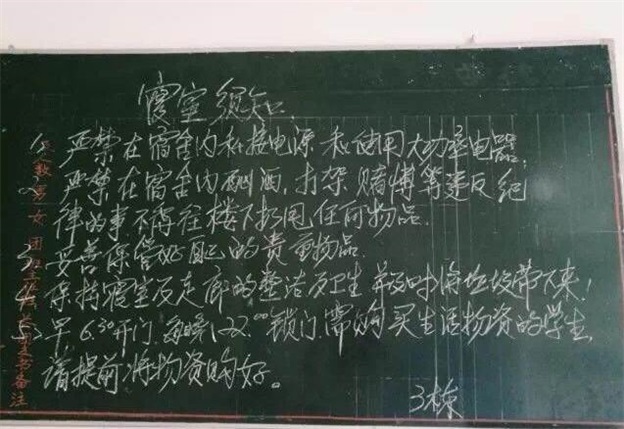 寝室须知
1、严禁在宿舍内私接电源和使用大功率电器。
2、严禁在宿舍内酗酒,打架赌博等违反纪
律的事不得往楼下扔甩任何物品.
3、妥善保管好自己的贵重物品
4、保持寝室及走廊的整洁及卫生并及时将垃圾带下来!
5、早6:30开门,每晚22:00锁门,需购买生活物资的学生,
请提前将物资购好。
3栋
男 女 团
备注